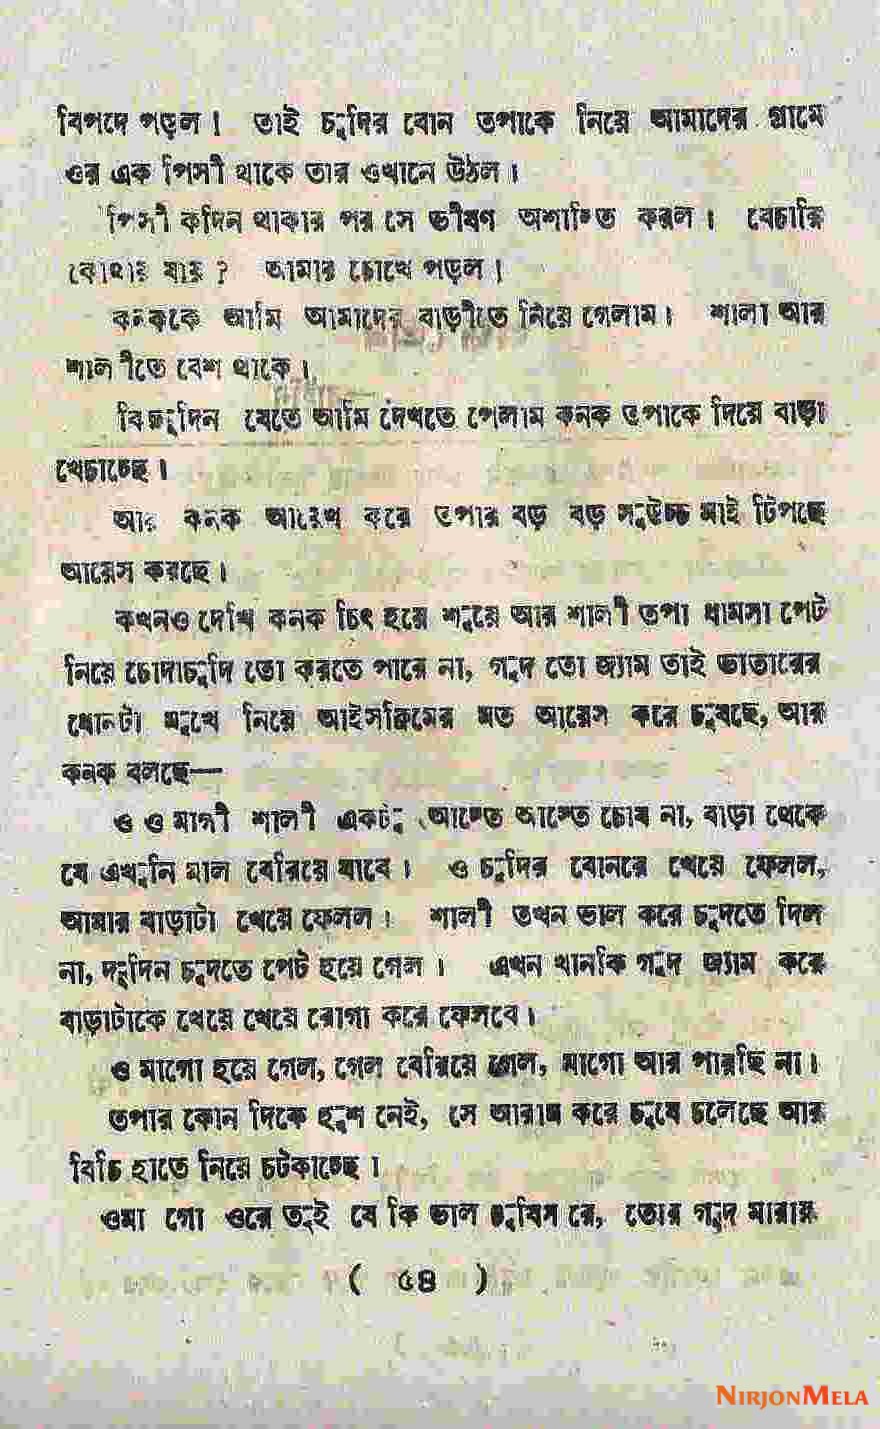 বিপদে পড়ল। তাই চুদির বোন তপাকে নিয়ে আমাদের গ্রামে
ওর এক পিসী থাকে তার ওখানে উঠল।
পিসী কদিন থাকার পর সে ভীষণ অশান্তি করল। বেচারি
কোথায় যায়? আমার চোখে পড়ল।
কনককে আমি আমাদের বাড়ীতে নিয়ে গেলাম। শালা আর
শালীতে বেশ থাকে।
কিছুদিন যেতে আমি দেখতে পেলাম কনক তপাকে দিয়ে বাড়া
খেচাচ্ছে।
আর কনক আয়েশ করে তপার বড় বড় সুউচ্চ মাই টিপছে
আয়েস করছে।
কখনও দেখি কনক চিৎ হয়ে শুয়ে আর শালী তপা ধামসা পেট
নিয়ে চোদাচুদি তো করতে পারে না, গুদ তো জ্যাম তাই ভাতারের
ধোনটা মুখে নিয়ে আইসক্রিমের মত আয়েস করে চুষছে, আর
কনক বলছে—
ও ও মাগী শালী একটু আস্তে আস্তে চোষ না, বাড়া থেকে
যে এখুনি মাল বেরিয়ে যাবে। ও চুদির বোনরে খেয়ে ফেলল,
আমার বাড়াটা খেয়ে ফেলল। শালী তখন ভাল করে চুদতে দিল
না, দুদিন চুদতে পেট হয়ে গেল। এখন খানকি গুদ জ্যাম করে
বাড়াটাকে খেয়ে খেয়ে রোগা করে ফেলবে।
ও মাগো হয়ে গেল, গেল বেরিয়ে গেল, মাগো আর পারছি না।
তপার কোন দিকে হুশ নেই, সে আরাম করে চুষে চলেছে আর
বিচি হাতে নিয়ে চটকাচ্ছে।
ওমা গো ওরে তুই যে কি ভাল চুষিস রে, তোর গুদ মারায়
( ৫৪ )
NIRJONMELA